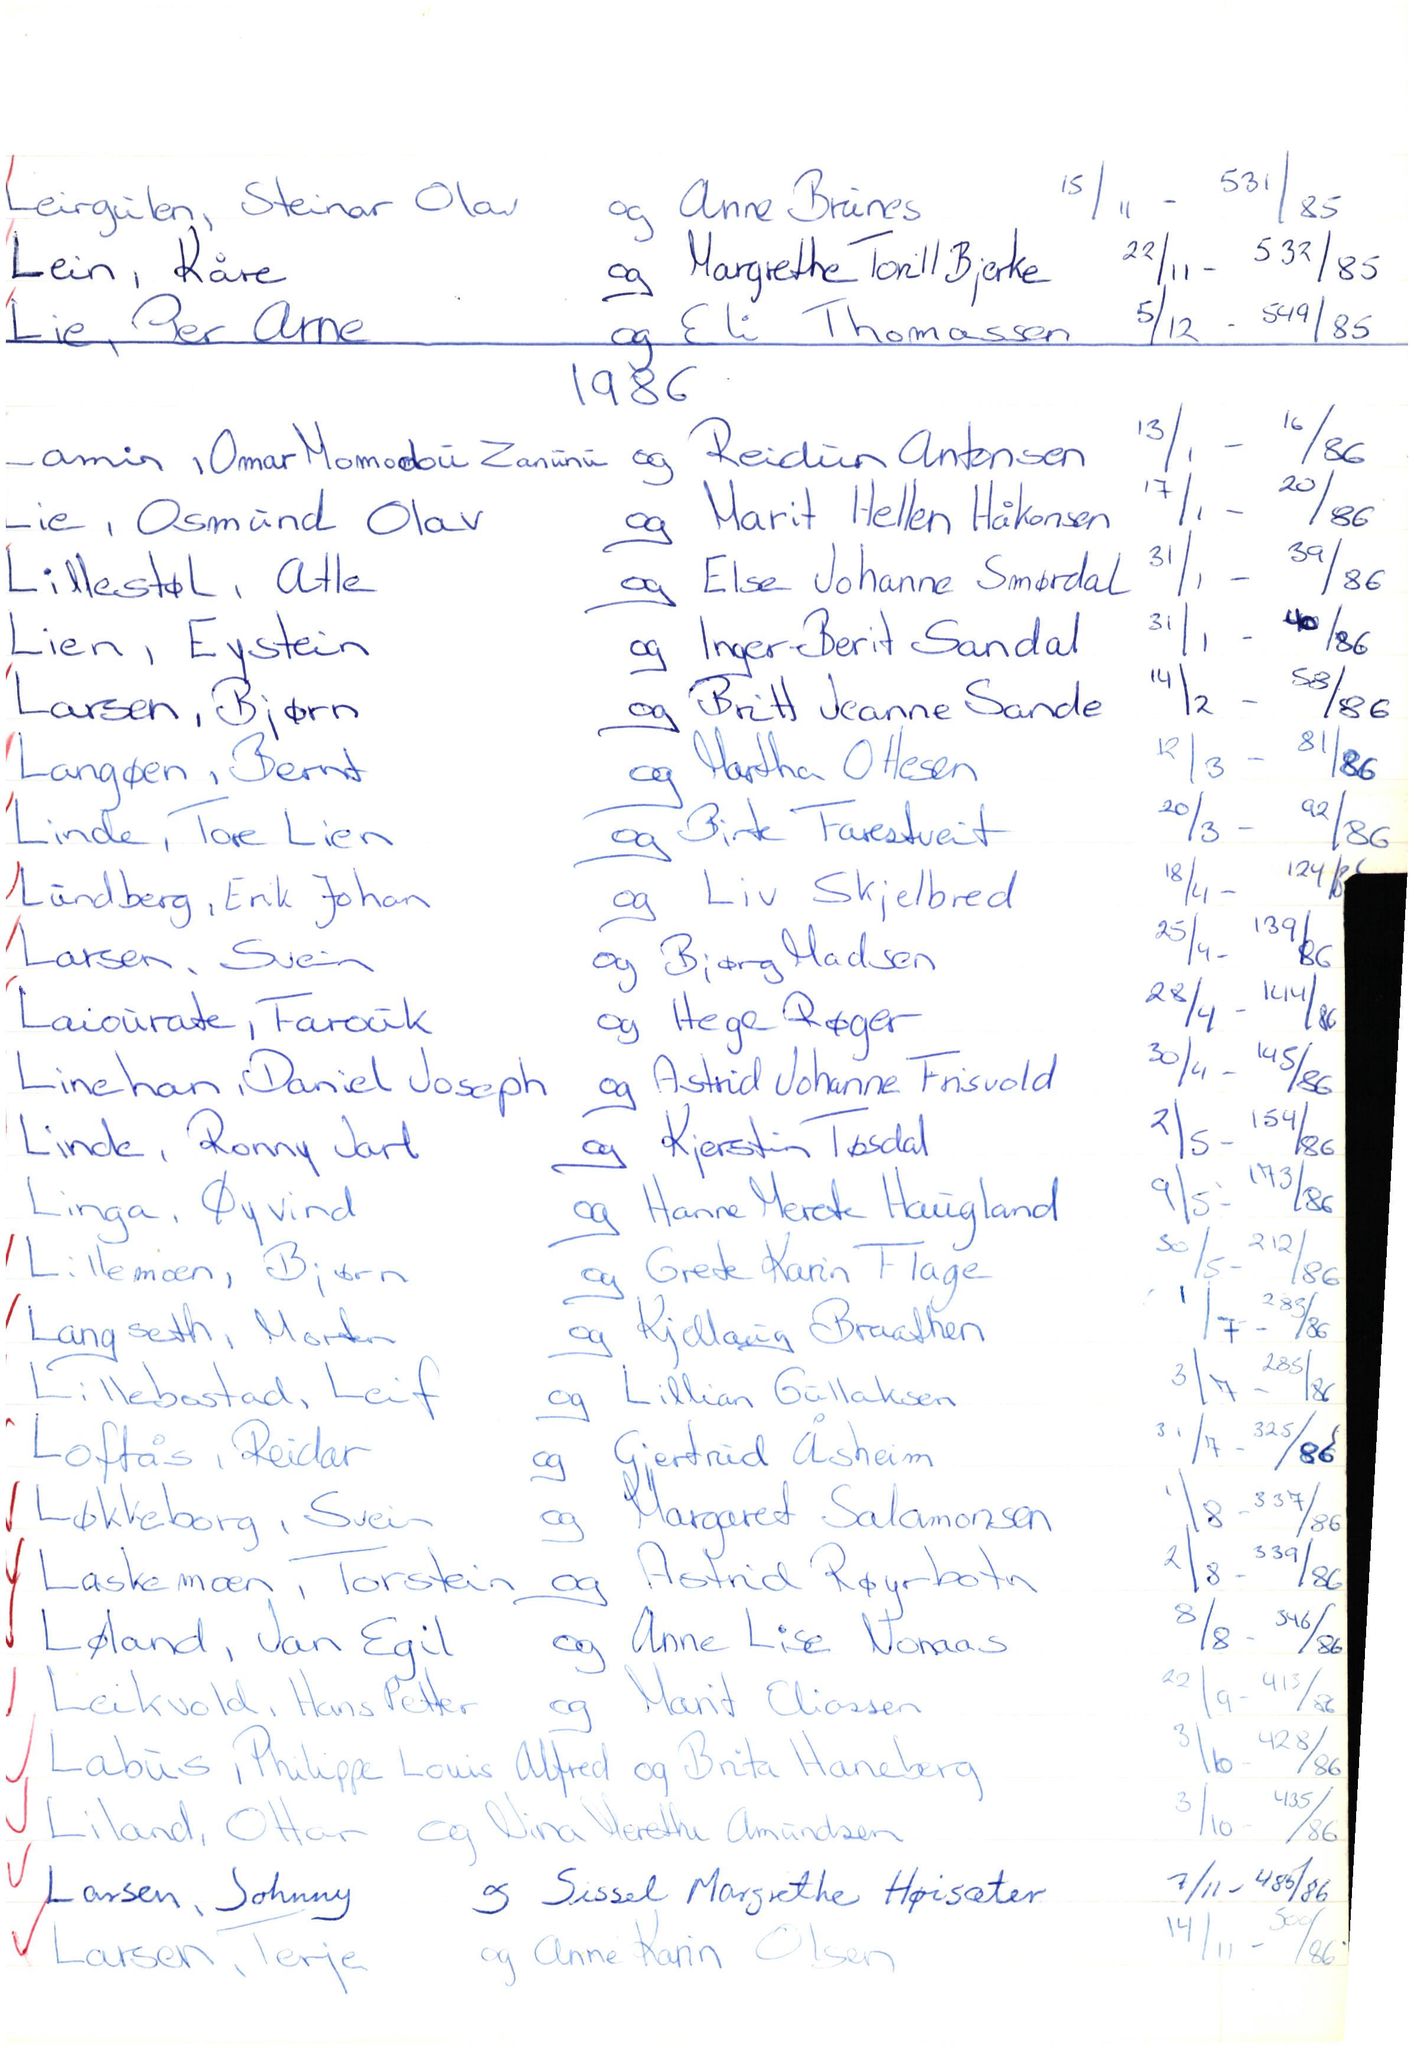 Leirgulen, Steinar Olav og Anne Brunes 15/11 - 531/85
Lein, Kåre og Margrethe Torill Bjerke 22/11 - 532/85
Lie, Per Arne og Eli Thomassen 5/12 - 549/85
1986
Lamin, Omar Momodou Zanunu og Reidun Antonsen 13/1 - 16/86
Lie, Osmund Olav og Marit Hellen Håkonsen 17/1 - 20/86
Lillestøl, Atle og Else Johanne Smørdal 31/1 - 39/86
Lien, Eystein og Inger-Berit Sandal 31/1 - 40/86
Larsen, Bjørn og Britt Jeanne Sande 14/2 - 58/86
Langøen, Bernt og Martha Ottesen 12/3 - 81/86
Linde, Tore Lien og Birte Farestveit 20/3 - 92/86
Lundberg, Erik Johan og Liv Skjelbred 18/4 - 124/86
Larsen, Svein og Bjørg Madsen 25/4 - 139/86
Laiourate, Farouk og Hege Røger 28/4 - 144/86
Linehan, Daniel Joseph og Astrid Johanne Frisvold 30/4 - 145/86
Linde, Ronny Jarl og Kjerstin Tøsdal 2/5 - 154/86
Linga, Øyvind og Hanne Merete Haugland 9/5 - 173/86
Lillemoen, Bjørn og Grete Karin Flage 30/5 - 212/86
Langseth, Morten og Kjellaug Braathen 1/7 - 283/86
Lillebostad, Leif og Lillian Gullaksen 3/7 - 285/86
Loftås, Reidar og Gjertrud Åsheim 31/7 - 325/86
Løkkeborg, Svein og Margaret Salamonsen 1/8 - 337/86
Laskemoen, Torstein og Astrid Røyrbotn 2/8 - 339/86
Løland, Jan Egil og Anne Lise Noraas 8/8 - 346/86
Leikvold, Hans Petter og Marit Eliassen 22/9 - 413/86
Labus, Philippe Louis Alfred og Brita Haneberg 3/10 - 428/86
Liland, Ottar og Nina Merethe Amundsen 3/10 - 435/86
Larsen, Johnny og Sissel Margrethe Høisæter 7/11 - 485/86
Larsen, Terje og Anne Karin Olsen 14/11 - 500/86